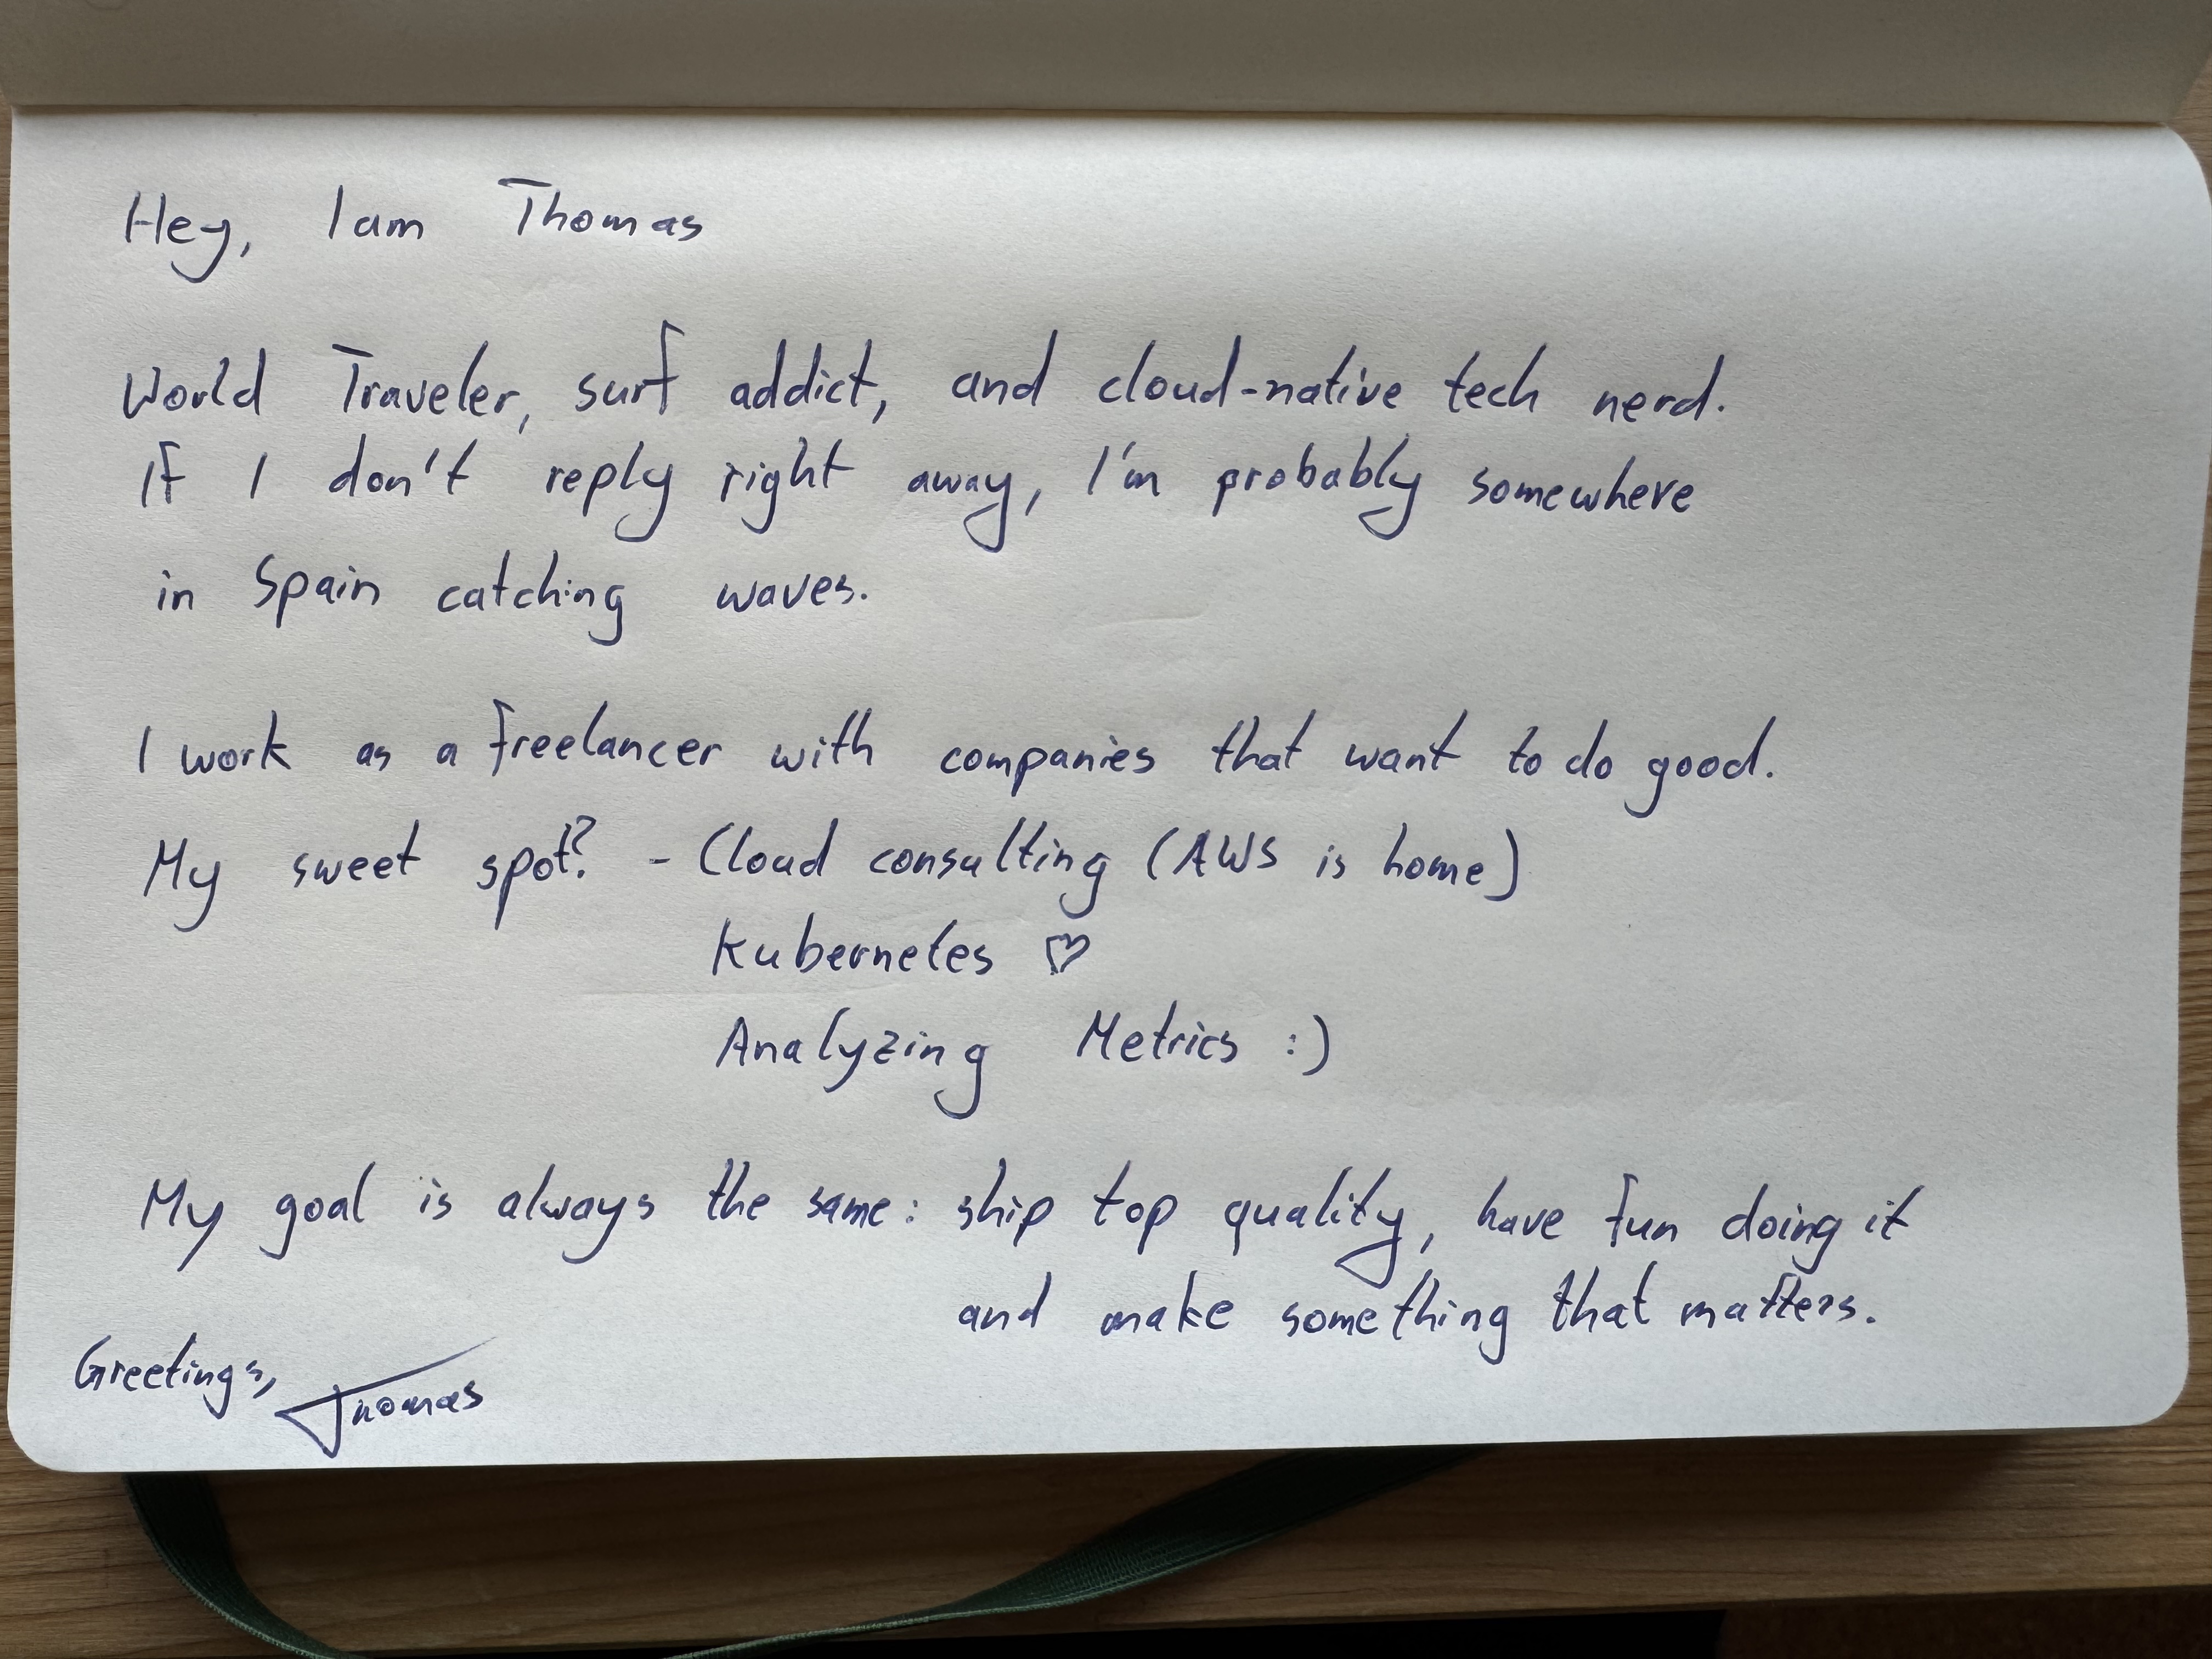 Hey, I am Thomas
World Traveler, surf addict, and cloud-native tech nerd.
If I don't reply right away, I'm probably somewhere
in Spain catching waves.
I work as a freelancer with companies that want to do good.
My sweet spot? - Cloud consulting (AWS is home)
Kubernetes ♡
Analyzing Metrics :)
My goal is always the same: ship top quality, have fun doing it
and make something that matters.
Greetings, Thomas